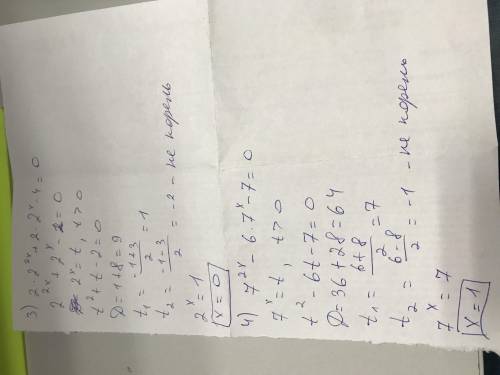 3) 2·2²ˣ + 2·2ˣ - 4 = 0
2²ˣ + 2ˣ - 2 = 0
2ˣ = t, t > 0
t² + t - 2 = 0
D = 1 + 8 = 9
t₁ = (-1+3)/2 = 1
t₂ = (-1-3)/2 = -2 - не корень
2ˣ = 1
x = 0
4) 7²ˣ - 6·7ˣ - 7 = 0
7ˣ = t, t > 0
t² - 6t - 7 = 0
D = 36 + 28 = 64
t₁ = (6+8)/2 = 7
t₂ = (6-8)/2 = -1 - не корень
7ˣ = 7
x = 1